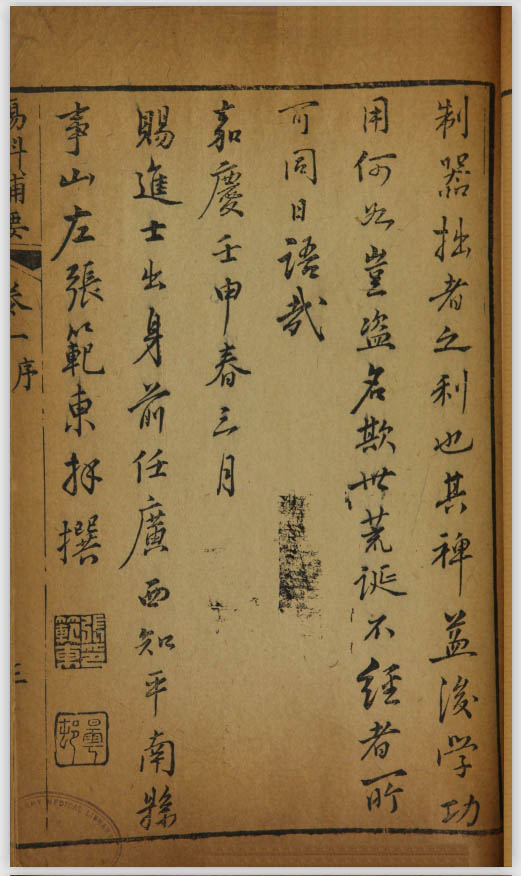 制器拙者之利也其裨益後学功
用何如豈盗名欺世荒诞不經者所
可同日語哉
嘉慶壬申春三月
賜進士出身前任廣西知平南縣
事山左張範東拜撰
張範東印
瘍科補要
卷一序
三
MEDICAL LIBRARY